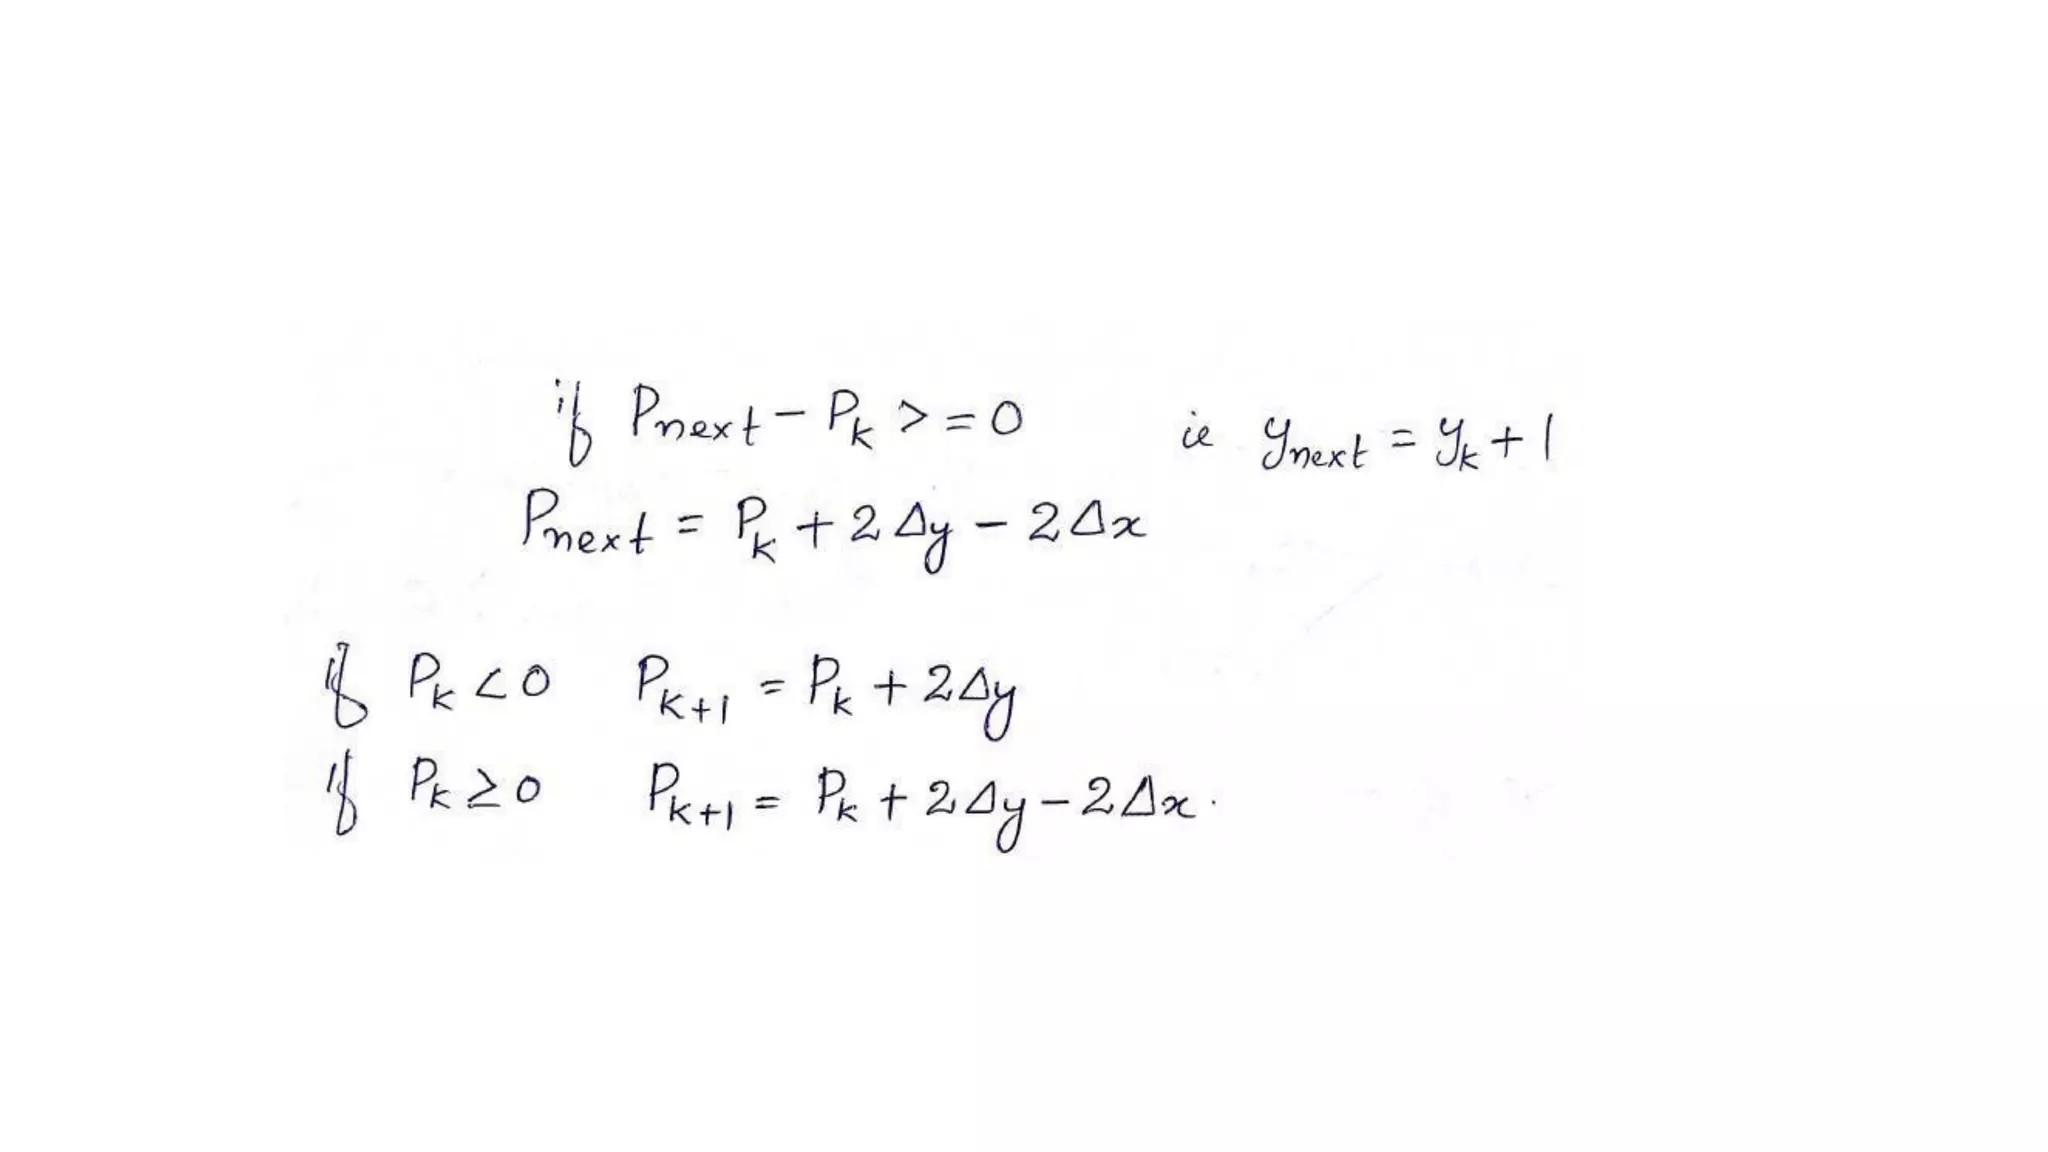 if Pnext - Pk >= 0 ie ynext = yk + 1
Pnext = Pk + 2Δy - 2Δx
if Pk < 0 Pk+1 = Pk + 2Δy
if Pk ≥ 0 Pk+1 = Pk + 2Δy - 2Δx.